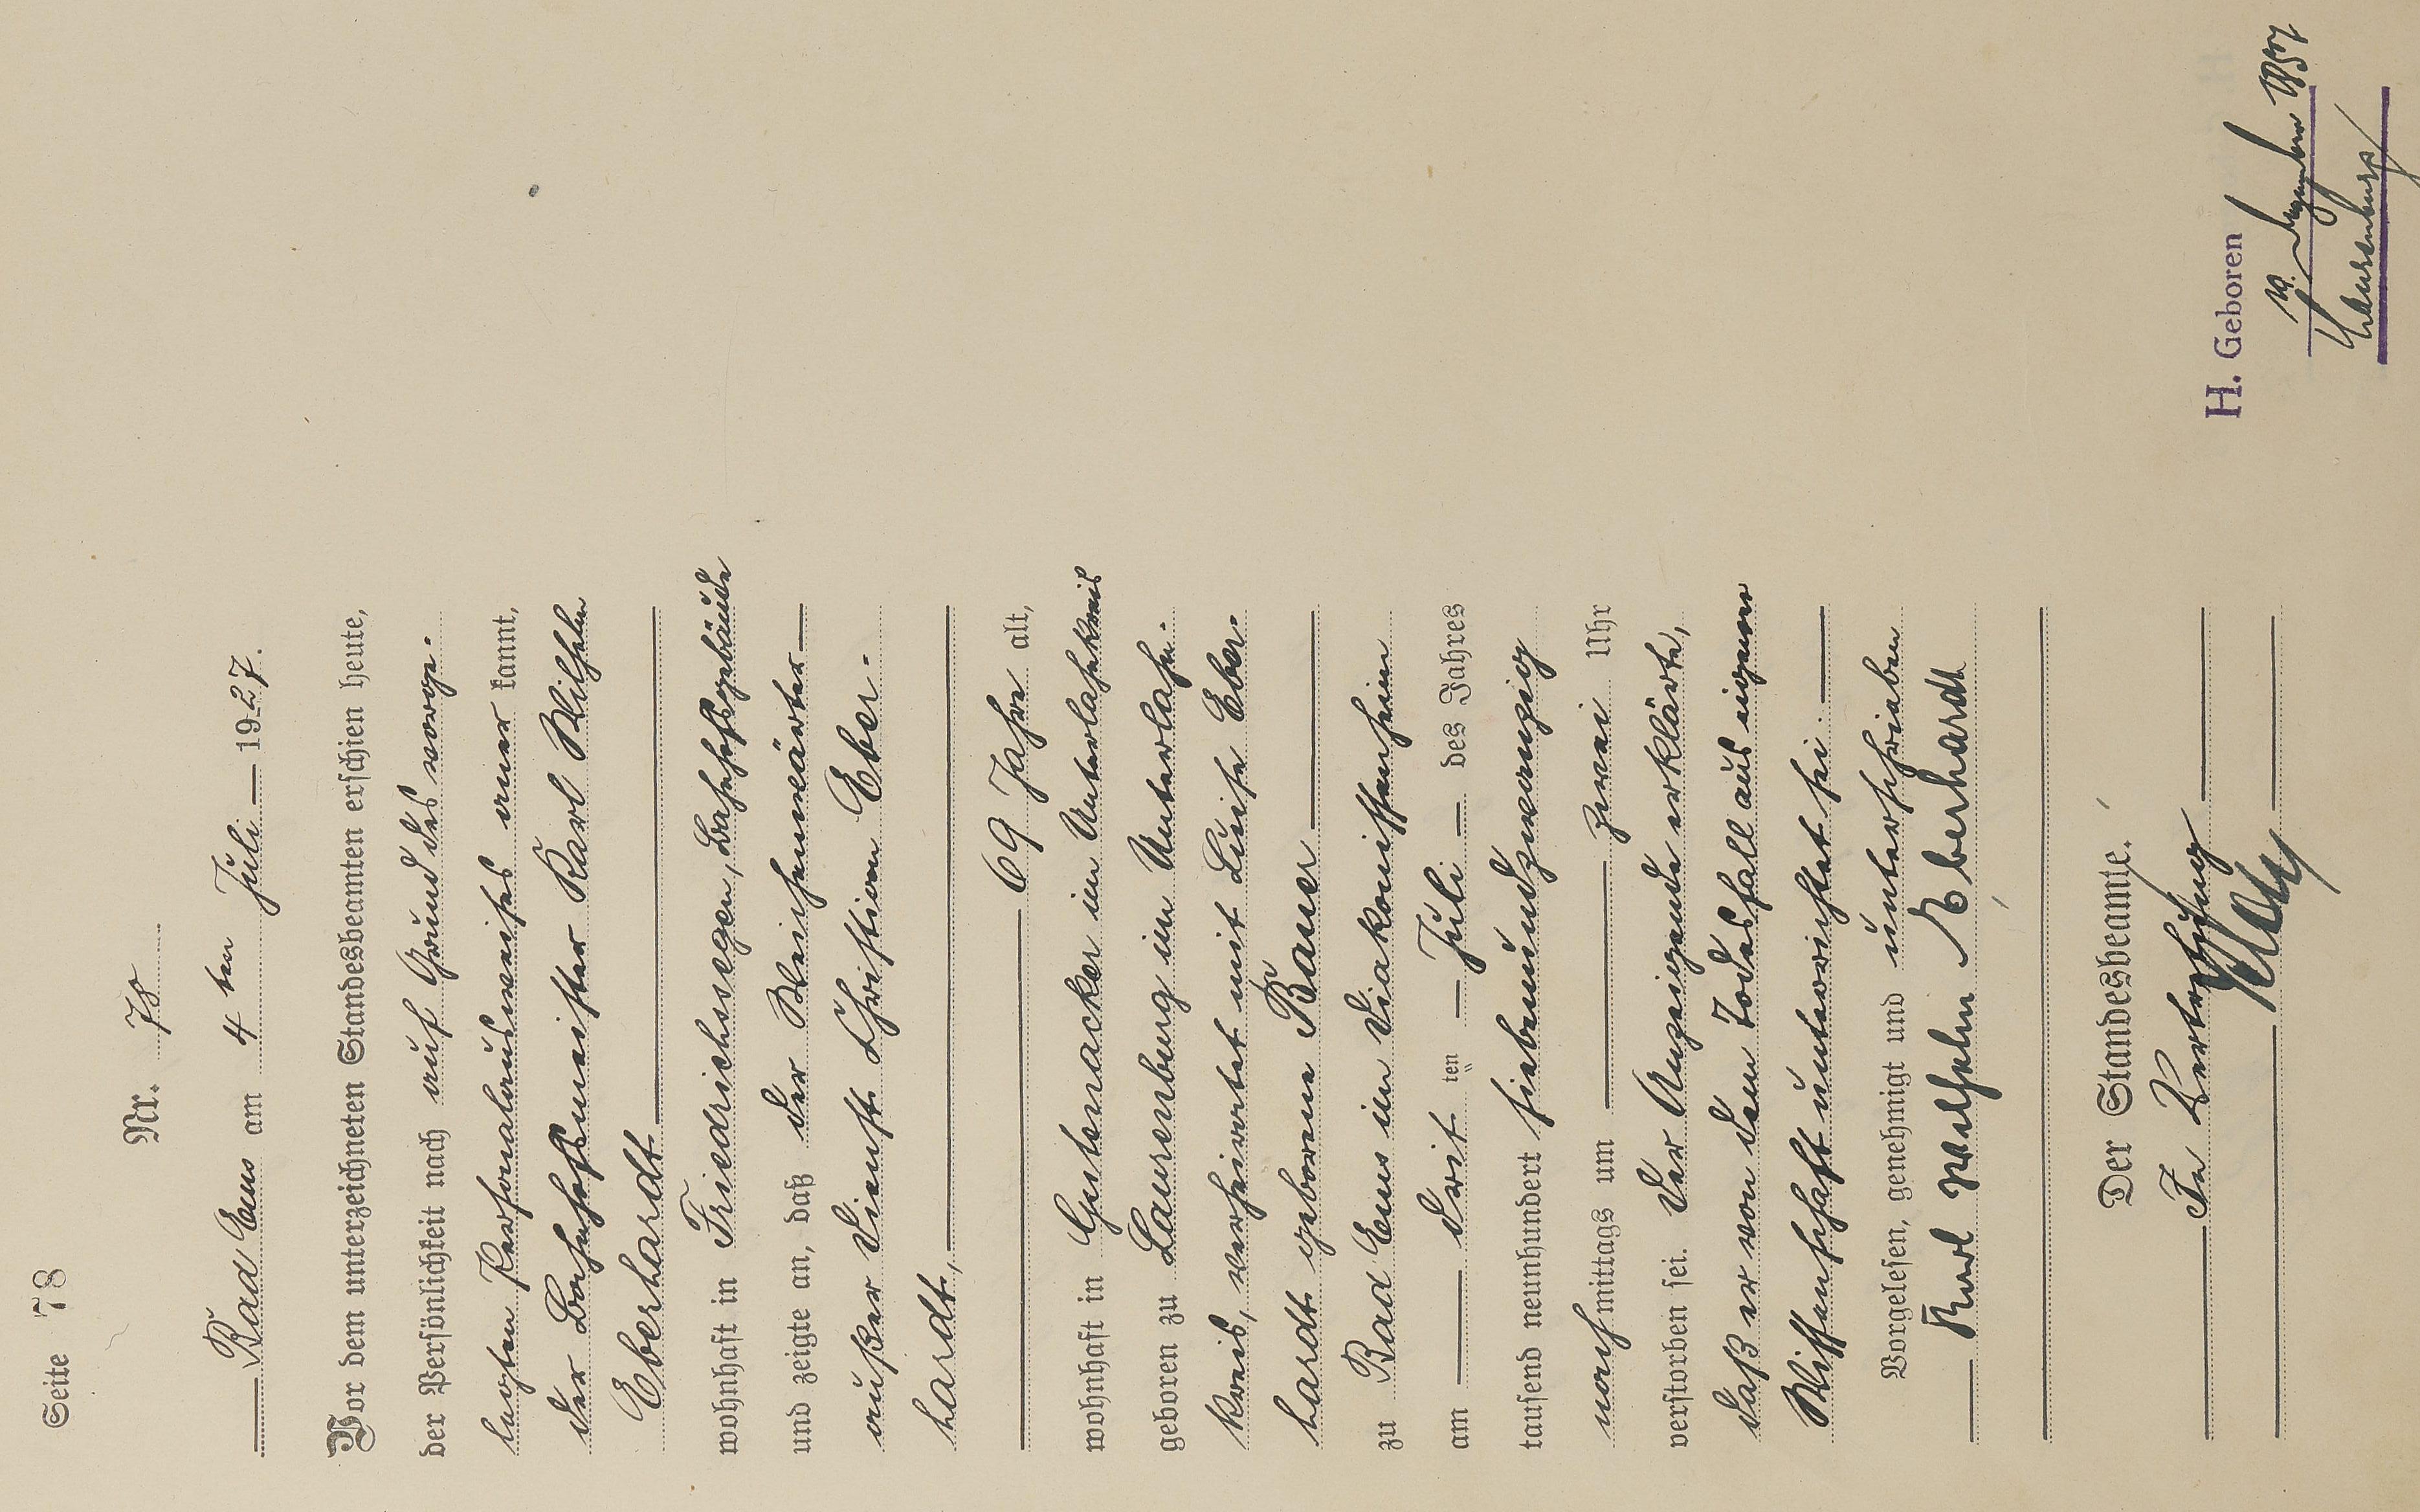 Seite 78
Nr. 78
Bad Ems am 4 ten Juli 1927.
Vor dem unterzeichneten Standesbeamten erschien heute,
der Persönlichkeit nach auf Grund des vorge-
legten Personalausweises aner kannt,
der Bahnhofsmeister Karl Wilhelm
Eberhardt
wohnhaft in Friedrichssegen, Bahnhofsgebäude
und zeigte an, daß der Weichenwärter
außer Dienst Christian Eber-
hardt,
69 Jahre alt,
wohnhaft in Gutenacker im Unterlahnkreis
geboren zu Laurenburg im Unterlahn-
kreis, verheiratet mit Luise Eber-
hardt geborene Bauer
zu Bad Ems im Diakonissenheim
am drit ten Juli des Jahres
tausend neunhundert siebenundzwanzig
nach mittags um zwei Uhr
verstorben sei. Der Anzeigende erklärte,
daß er von dem Todesfall aus eigener
Wissenschaft unterrichtet sei.
Vorgelesen, genehmigt und unterschrieben
Karl Wilhelm Eberhardt
Der Standesbeamte.
In Vertretung
H. Geboren
Dezember 1857
Laurenburg